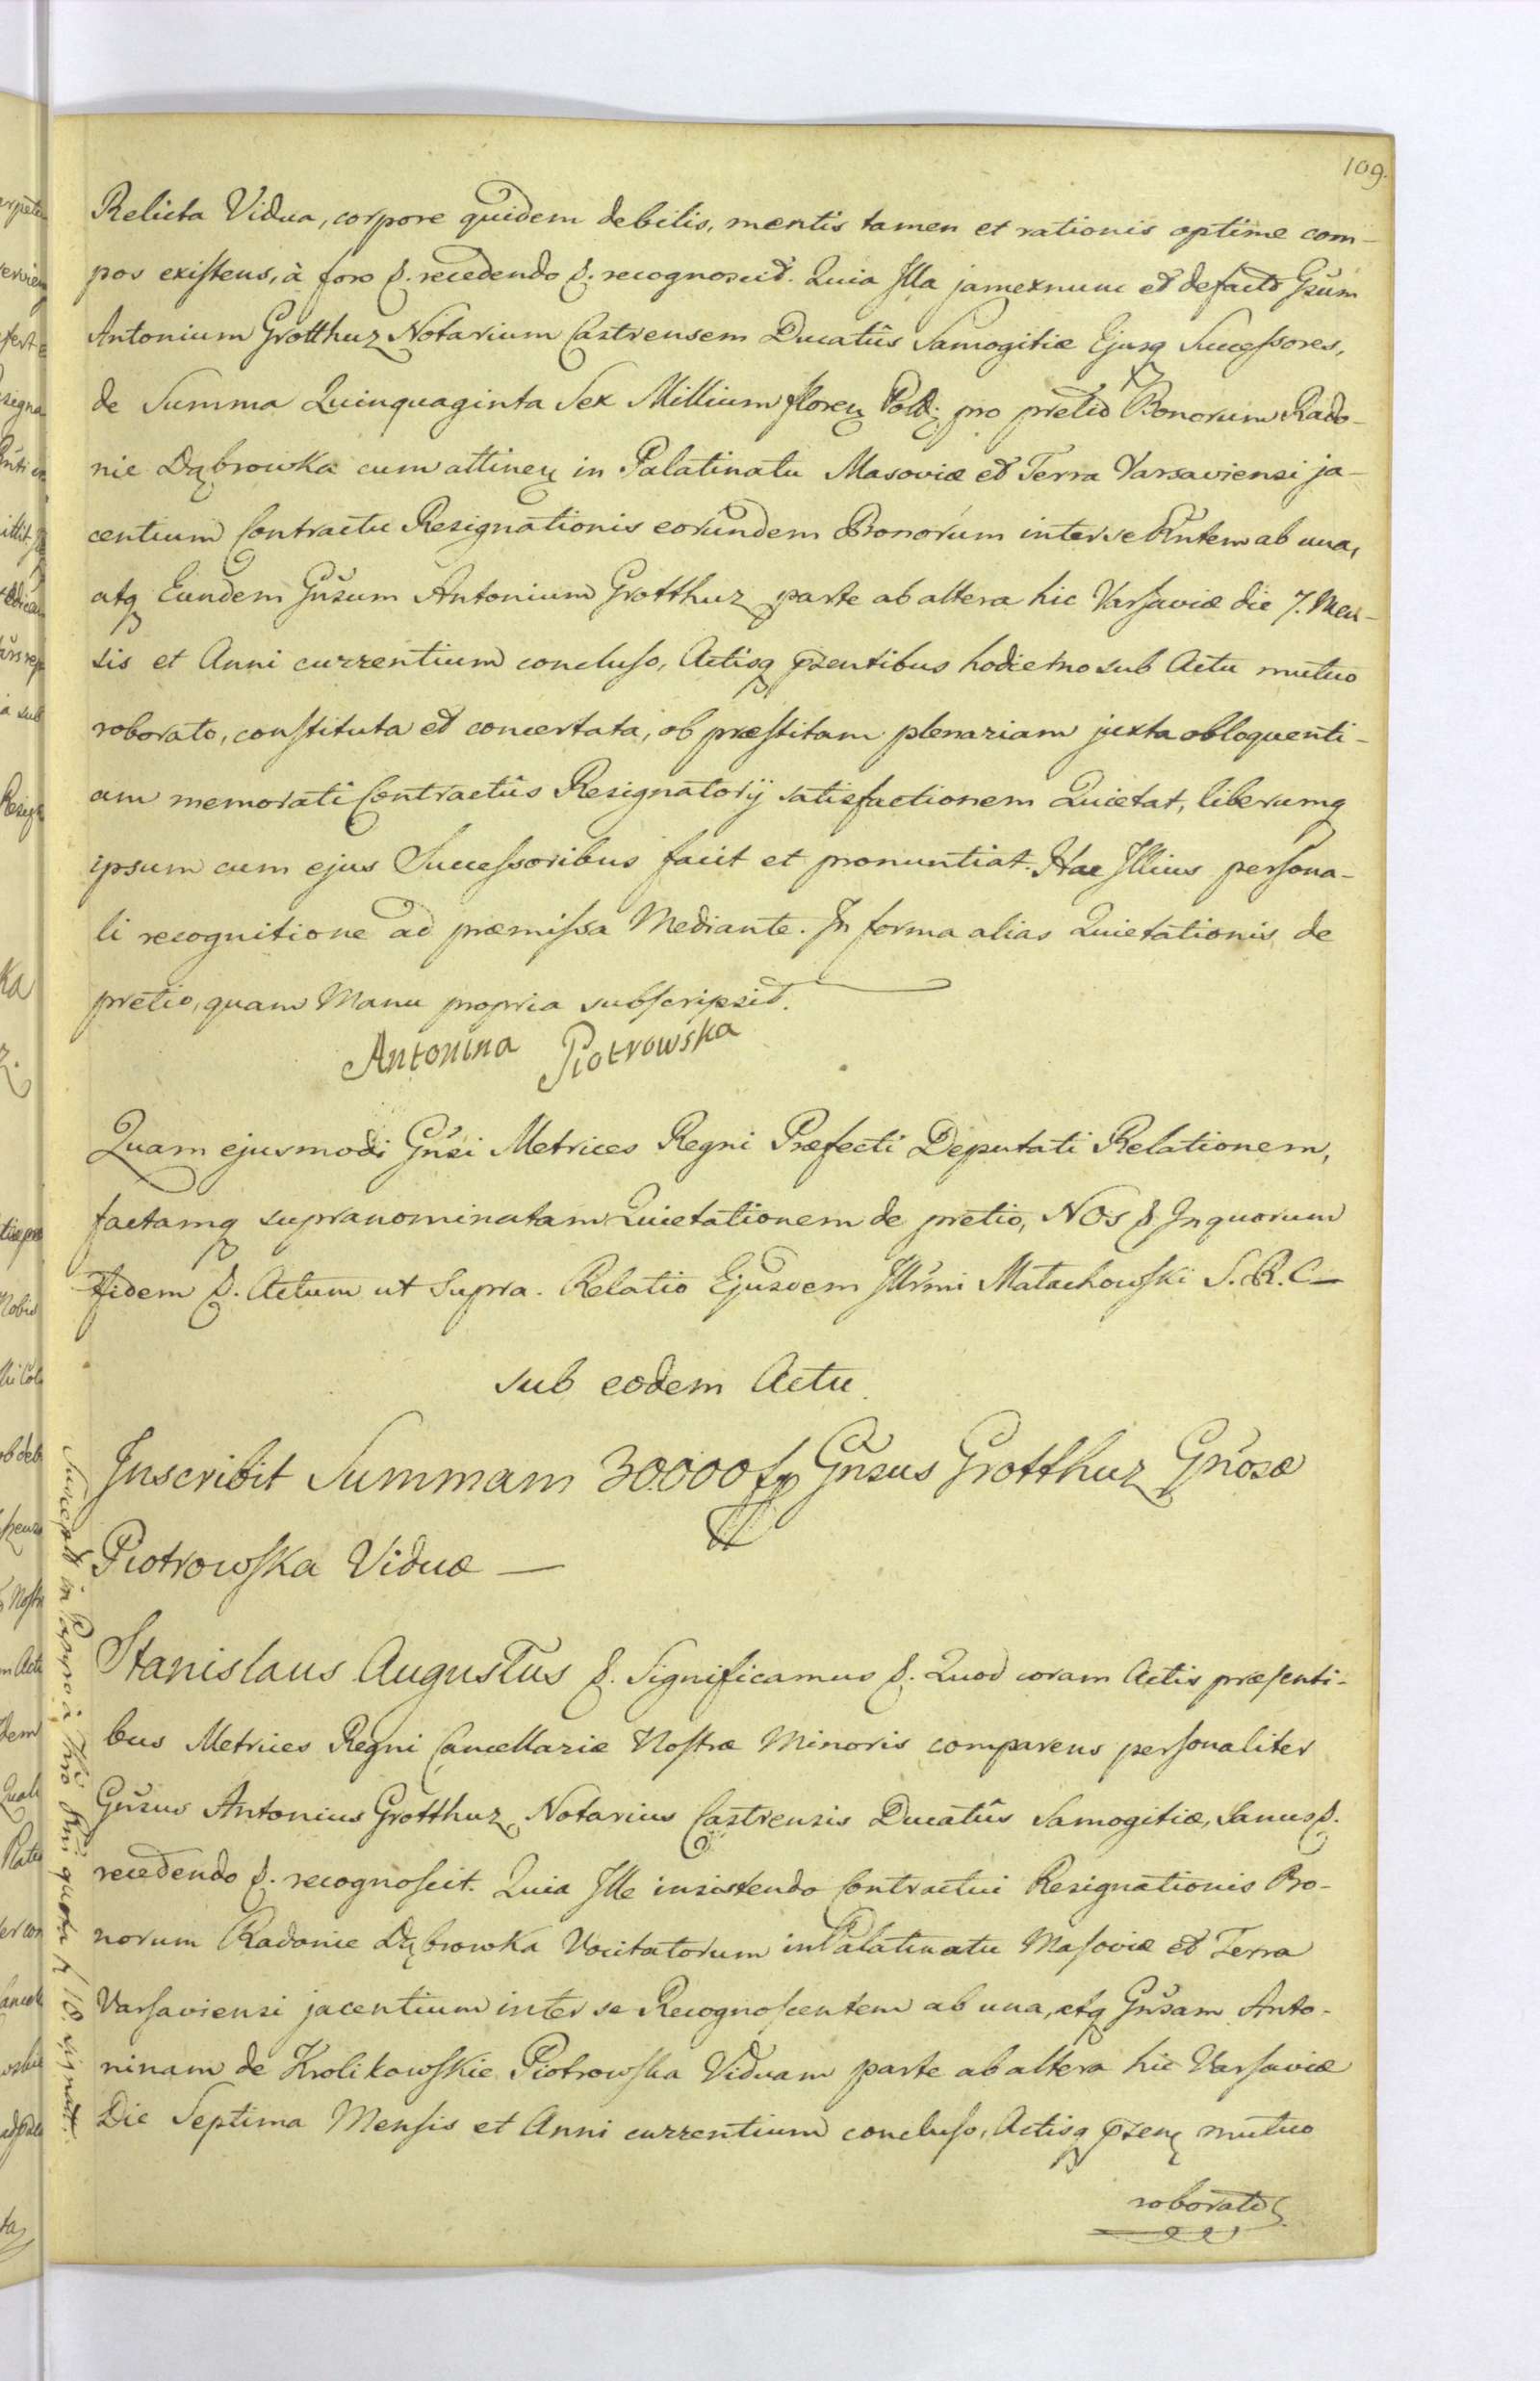 109.
Relicta Vidua, corpore quidem debilis, mentis tamen et rationis optime com-
pos existens, à foro &. recedendo &. recognoscit. Quia Illa jamexnunc et defacto Gsum
Antonium Grotthuz Notarium Castrensem Ducatûs Samogitiæ Ejusq Successores,
de Summa Quinquaginta Sex Millium floren Poll: pro pretio Bonorum Rado-
nie Dąbrowka cum attinen in Palatinatu Masoviæ et Terra Varsaviensi ja-
centium Contractu Resignationis eorundem Bonorum inter se Rntem ab una,
atq Eundem Gnsum Antonium Grotthuz parte ab altera hic Varsaviæ die 7. Men-
sis et Anni currentium concluso, Actisq pzentibus hodierno sub Actu mutuo
roborato, constituta et concertata, ob præstitam plenariam juxta obloquenti-
am memorati Contractûs Resignatorij satisfactionem Quietat, liberumq
ipsum cum ejus Successoribus facit et pronuntiat. Hac Illius persona-
li recognitione ad præmissa Mediante. In forma alias Quietationis de
pretio, quam Manu propria subscripsit.
Antonina Piotrowska
Quam ejusmodi Gnsi Metrices Regni Præfecti Deputati Relationem,
factamq supranominatam Quietationem de pretio, NOS & In quorum
fidem &. Actum ut Supra. Relatio Ejusdem Illrmi Małachowski S. R. C
sub eodem Actu
Inscribit Summam 30.000 fp Gnsus Grotthuz Gnosæ
Piotrowska Viduæ
Stanislaus Augustus &. Significamus &. Quod coram Actis præsenti-
bus Metrices Regni Cancellariæ Nostræ Minoris comparens personaliter
Gnsus Antonius Grotthuz Notarius Castrensis Ducatûs Samogitiæ, Sanus &.
recedendo &. recognoscit. Quia Ille insistendo Contractui Resignationis Bo-
norum Radonie Dąbrowka Vocitatorum in Palatinatu Masoviæ et Terra
Varsaviensi jacentium inter se Recognoscentem ab una, atq Gnsam Anto-
ninam de Krolikowskie Piotrowska Viduam parte ab altera hic Varsaviæ
Die Septima Mensis et Anni currentium concluso, Actisq pzen mutuo
roborato